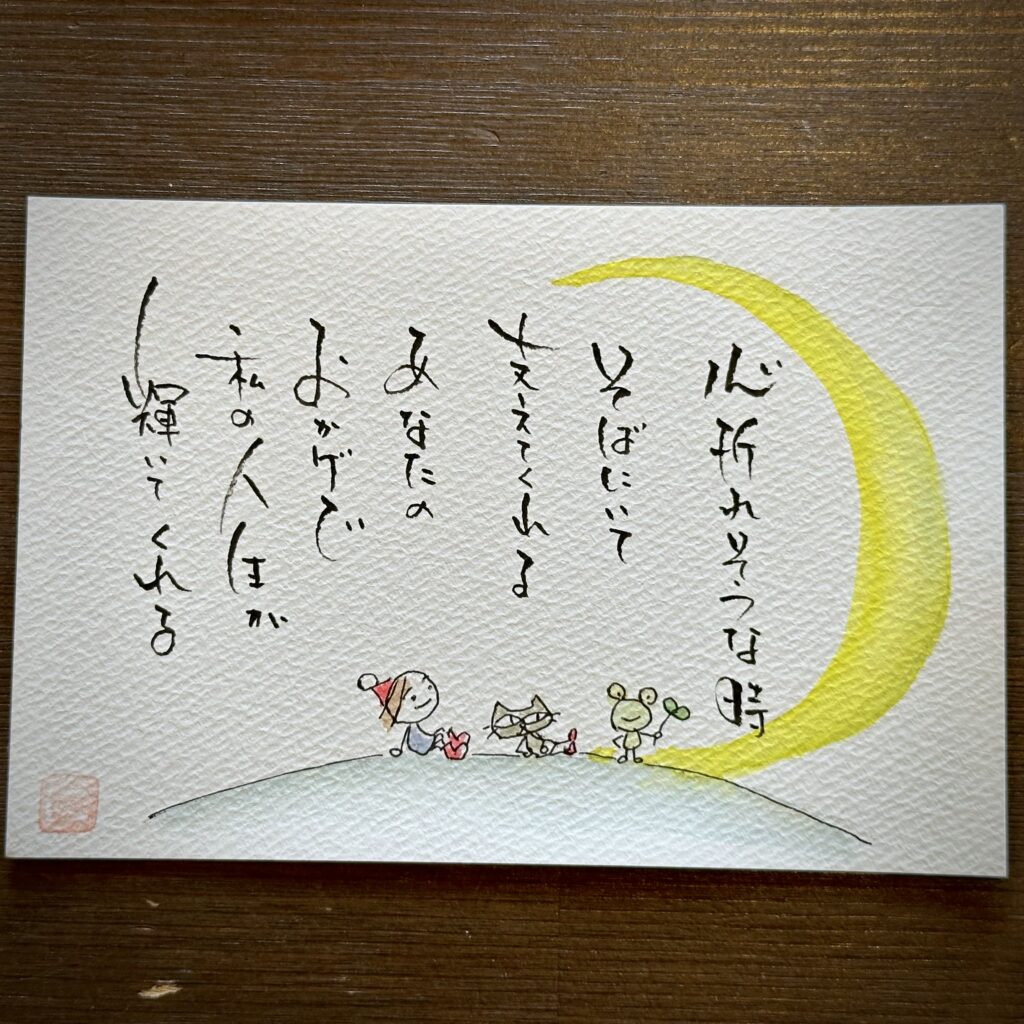 心折れそうな時
そばにいて
支えてくれる
あなたの
おかげで
私の人生が
輝いてくれる